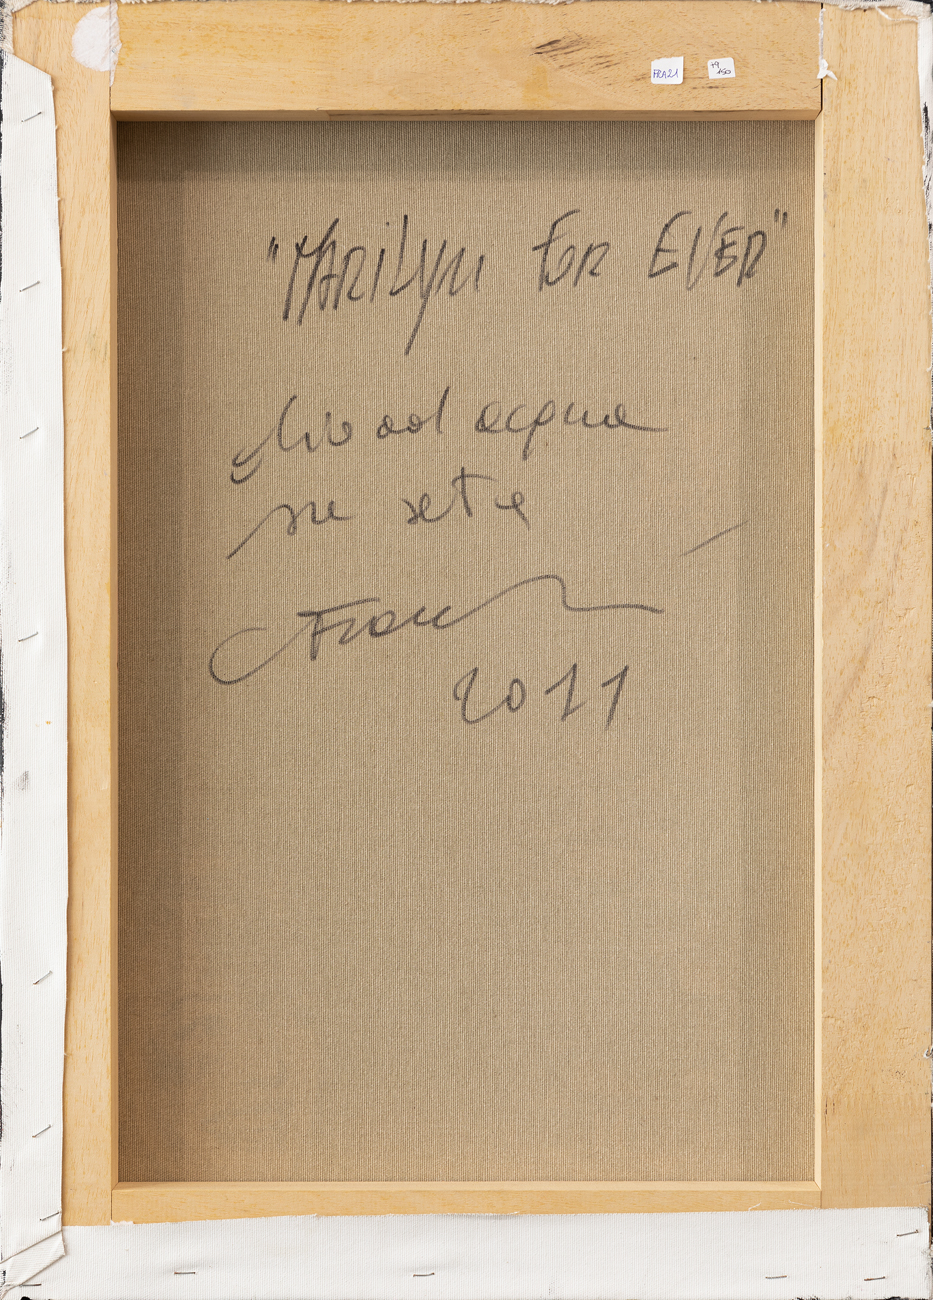 FRA21
79
A50
"MARiLyn FOR EVER"
olio ad acqua
su seta
2011